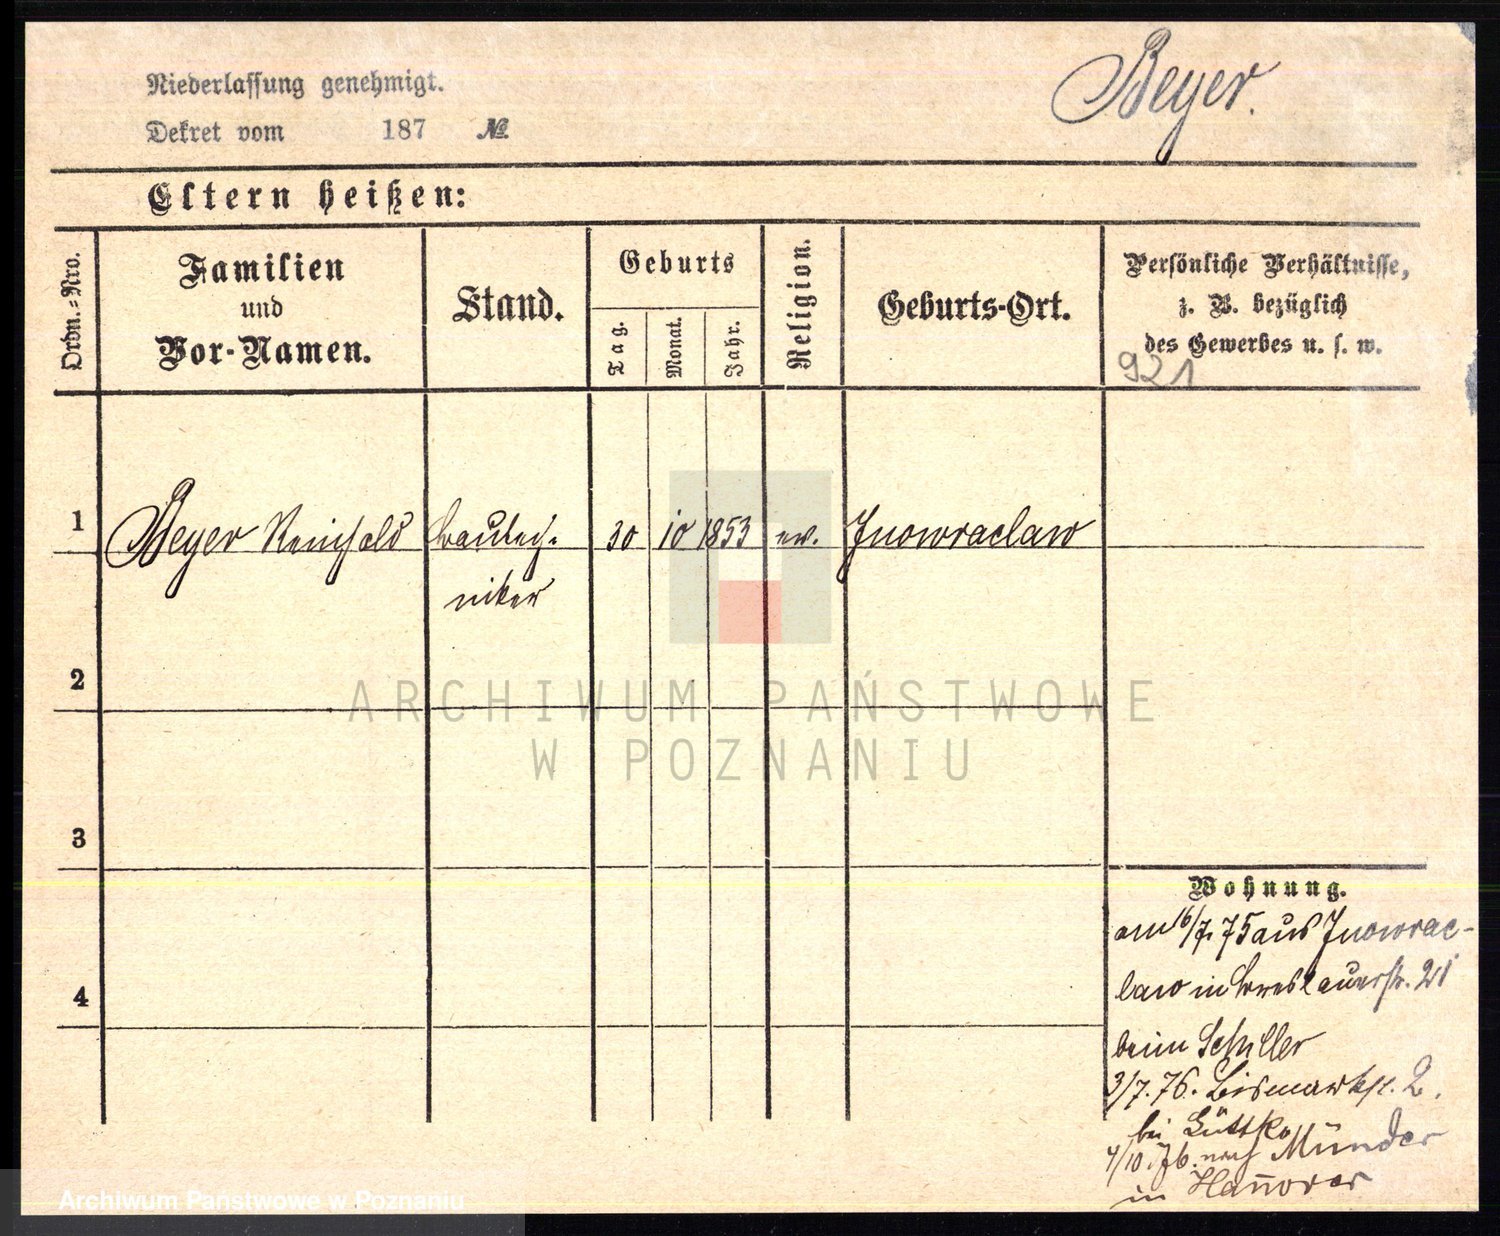 Niederlassung genehmigt.
Dekret vom 187 №
Beyer.
Eltern heißen:
Ordn.=Nro.
Familien
und
Vor-Namen.
Stand.
Geburts
Tag.
Monat.
Jahr.
Religion.
Geburts-Ort.
Persönliche Verhältnisse,
z. B. bezüglich
des Gewerbes u. s. w.
921
1 Beyer Reinhold Bautech- 30 10 1853 ev. Inowraclaw
niker
2
3
4
ARCHIWUM PAŃSTWOWE
W POZNANIU
Wohnung.
am 16/7. 75 aus Inowrac-
law in Breslauerstr. 21
beim Schiller
3/7. 76. Bismarkst. 2.
bei
4/10. 76. nach Münder
in Hannover
Archiwum Państwowe w Poznaniu